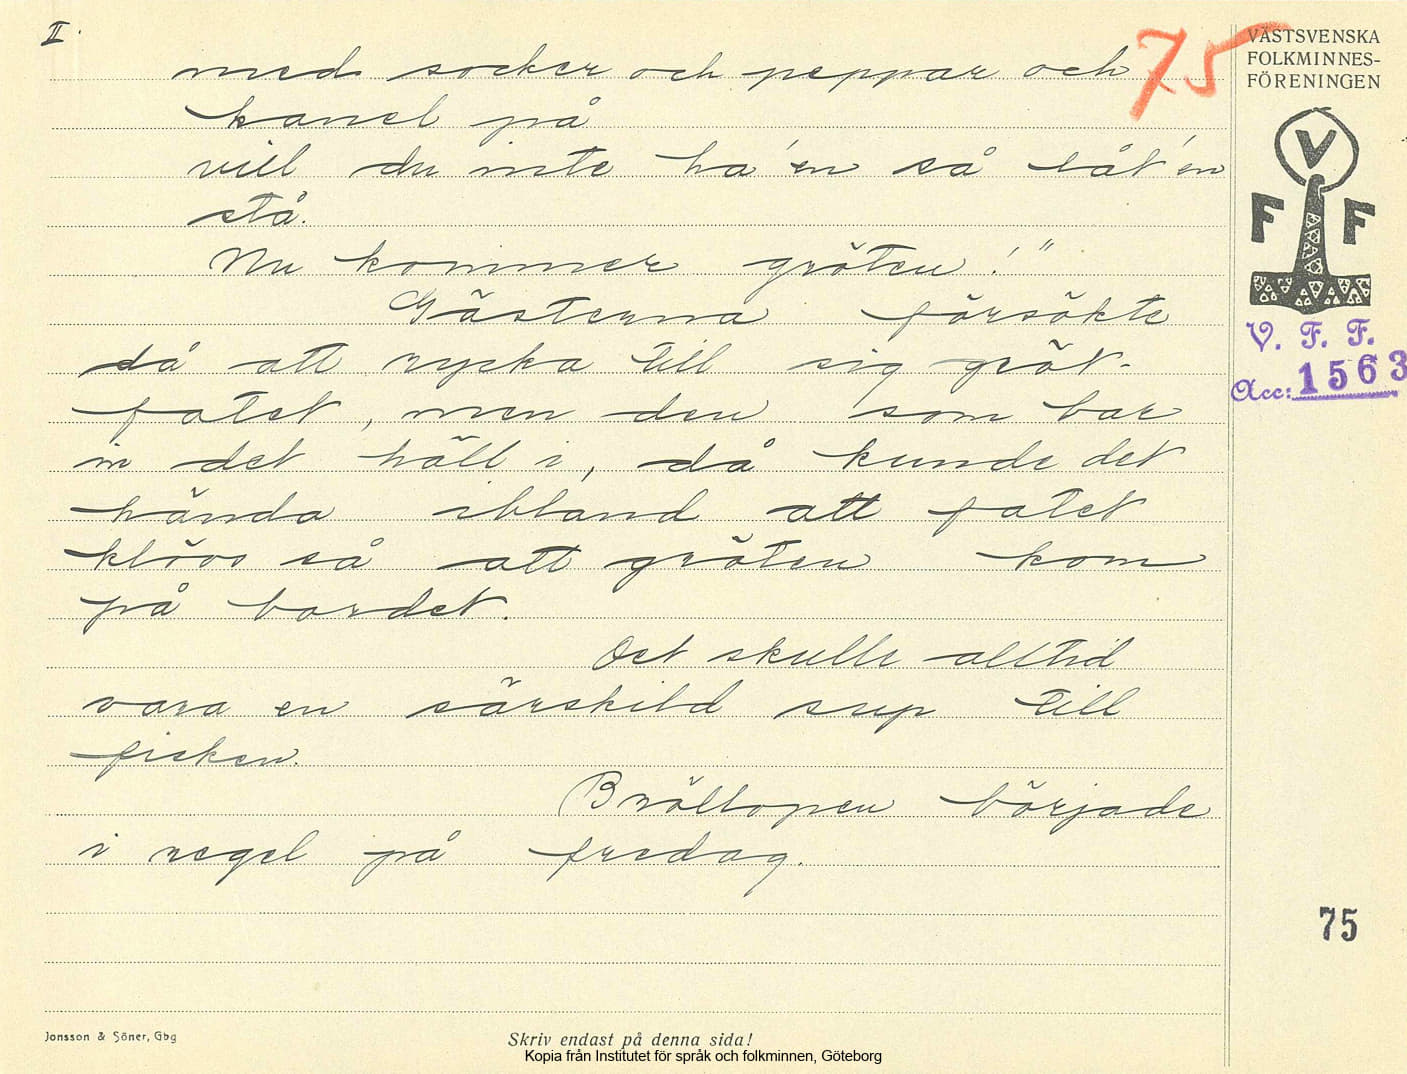 II.
75
VÄSTSVENSKA
FOLKMINNES-
FÖRENINGEN
med socker och peppar och
kanel på
vill du inte ha'en så låt'en
stå.
Nu kommer gröten!"
Gästerna försökte
då att rycka till sig gröt-
fatet, men den som bar
in det höll i, då kunde det
hända ibland att fatet
klövs så att gröten kom
på bordet.
Det skulle alltid
vara en särskild sup till
fisken.
Bröllopen började
i regel på fredag.
V
F F
V. F. F.
Acc: 1563
75
Jonsson & Söner, Gbg
Skriv endast på denna sida!
Kopia från Institutet för språk och folkminnen, Göteborg